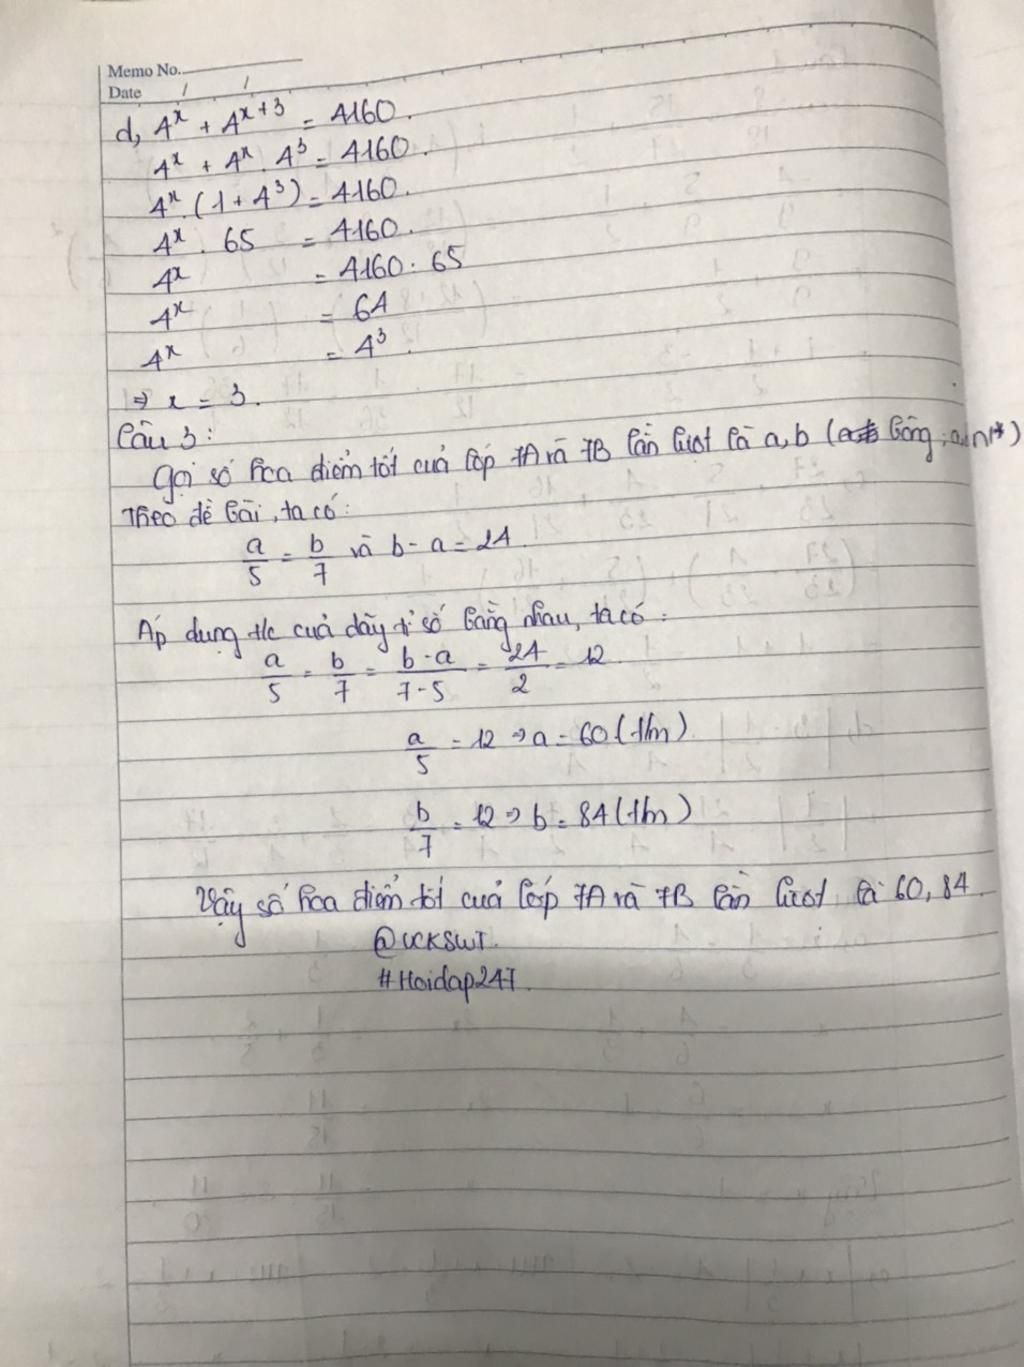 Memo No.
Date / /
d, 4^x + 4^{x+3} = 4160.
4^x + 4^x . 4^3 = 4160.
4^x . (1 + 4^3) = 4160.
4^x . 65 = 4160.
4^x = 4160 : 65
4^x = 64
4^x = 4^3.
⇒ x = 3.
Câu 3:
Gọi số hoa điểm tốt của lớp 7A và 7B lần lượt là a, b (bông; a,b
Theo đề bài, ta có:
a/5 = b/7 và b - a = 24.
Áp dụng t/c của dãy tỉ số bằng nhau, ta có:
a/5 = b/7 = b-a/7-5 = 24/2 = 12.
a/5 = 12 ⇒ a = 60 (t/m)
b/7 = 12 ⇒ b = 84 (t/m)
Vậy số hoa điểm tốt của lớp 7A và 7B lần lượt là 60, 84.
@UCKSWT.
#Hoidap247.